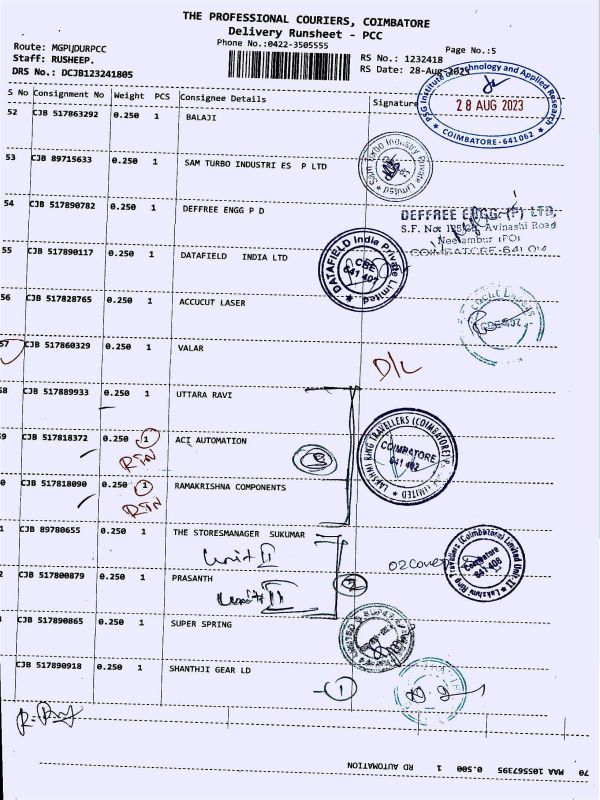 THE PROFESSIONAL COURIERS, COIMBATORE
Delivery Runsheet - PCC
Phone No.:0422-3505555
Page No.:5
Route: MGPUDURPCC
RS No.: 1232418
Staff: RUSHEEP.
RS Date: 28-Aug-2023
DRS No.: DCJB123241805
S No Consignment No Weight PCS Consignee Details Signature
PSG Institute of Technology and Applied Research
28 AUG 2023
COIMBATORE-641062
52 CJB 517863292 0.250 1 BALAJI
53 CJB 89715633 0.250 1 SAM TURBO INDUSTRI ES P LTD
Sam Turbo Industry Private Limited
54 CJB 517890782 0.250 1 DEFFREE ENGG P D
DEFFREE ENGG. (P) LTD,
S.F. No: 125/6B, Avinashi Road
Neelambur (PO)
COIMBATORE-641 014
55 CJB 517890117 0.250 1 DATAFIELD INDIA LTD
DATAFIELD India Private Limited
CBE
641 407
56 CJB 517828765 0.250 1 ACCUCUT LASER
57 CJB 517860329 0.250 1 VALAR
D/L
58 CJB 517889933 0.250 1 UTTARA RAVI
9 CJB 517818372 0.250 1 ACI AUTOMATION
RTN
LAKSHMI RING TRAVELLERS (COIMBATORE) LIMITED
COIMBATORE
641 402
0 CJB 517818090 0.250 1 RAMAKRISHNA COMPONENTS
RTN
1 CJB 89780655 0.250 1 THE STORESMANAGER SUKUMAR
Unit II
02 Cover
Lakshmi Ring Travellers (Coimbatore) Limited Unit-II
Coimbatore
641 406
2 CJB 517800879 0.250 1 PRASANTH
Unit II
2
CJB 517890865 0.250 1 SUPER SPRING
CJB 517890918 0.250 1 SHANTHJI GEAR LD
1
70 MAA 105567395 0.500 1 RD AUTOMATION